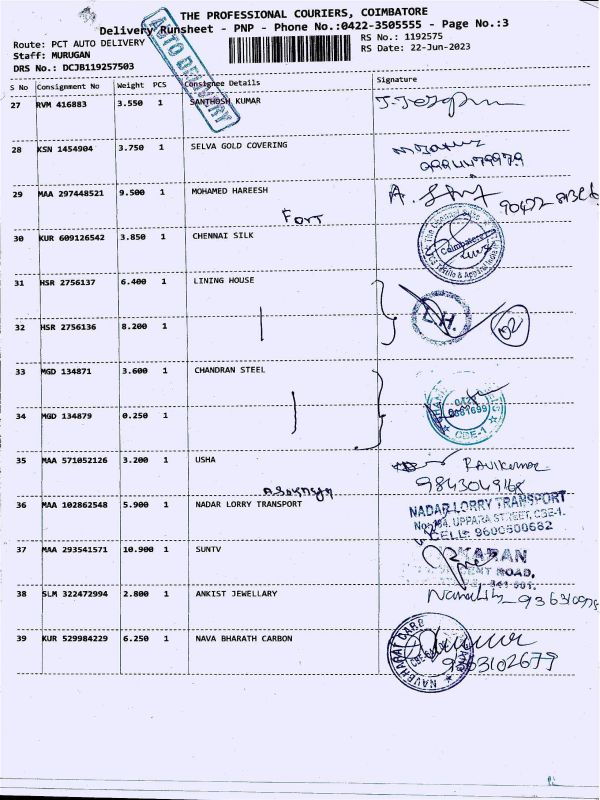 THE PROFESSIONAL COURIERS, COIMBATORE
Delivery Runsheet - PNP - Phone No.:0422-3505555 - Page No.:3
Route: PCT AUTO DELIVERY
Staff: MURUGAN
DRS No.: DCJB119257503
RS No.: 1192575
RS Date: 22-Jun-2023
AUTO DELIVERY
S No Consignment No Weight PCS Consignee Details Signature
27 RVM 416883 3.550 1 SANTHOSH KUMAR
28 KSN 1454904 3.750 1 SELVA GOLD COVERING
29 MAA 297448521 9.500 1 MOHAMED HAREESH
Fort
30 KUR 609126542 3.850 1 CHENNAI SILK
31 HSR 2756137 6.400 1 LINING HOUSE
L.H.
02
32 HSR 2756136 8.200 1
33 MGD 134871 3.600 1 CHANDRAN STEEL
CBE-1
34 MGD 134879 0.250 1
35 MAA 571052126 3.200 1 USHA
Ravikumar
9843049168
36 MAA 102862548 5.900 1 NADAR LORRY TRANSPORT
NADAR LORRY TRANSPORT
UPPARA STREET, CBE-1.
CELL: 9600500682
37 MAA 293541571 10.900 1 SUNTV
38 SLM 322472994 2.800 1 ANKIST JEWELLARY
39 KUR 529984229 6.250 1 NAVA BHARATH CARBON